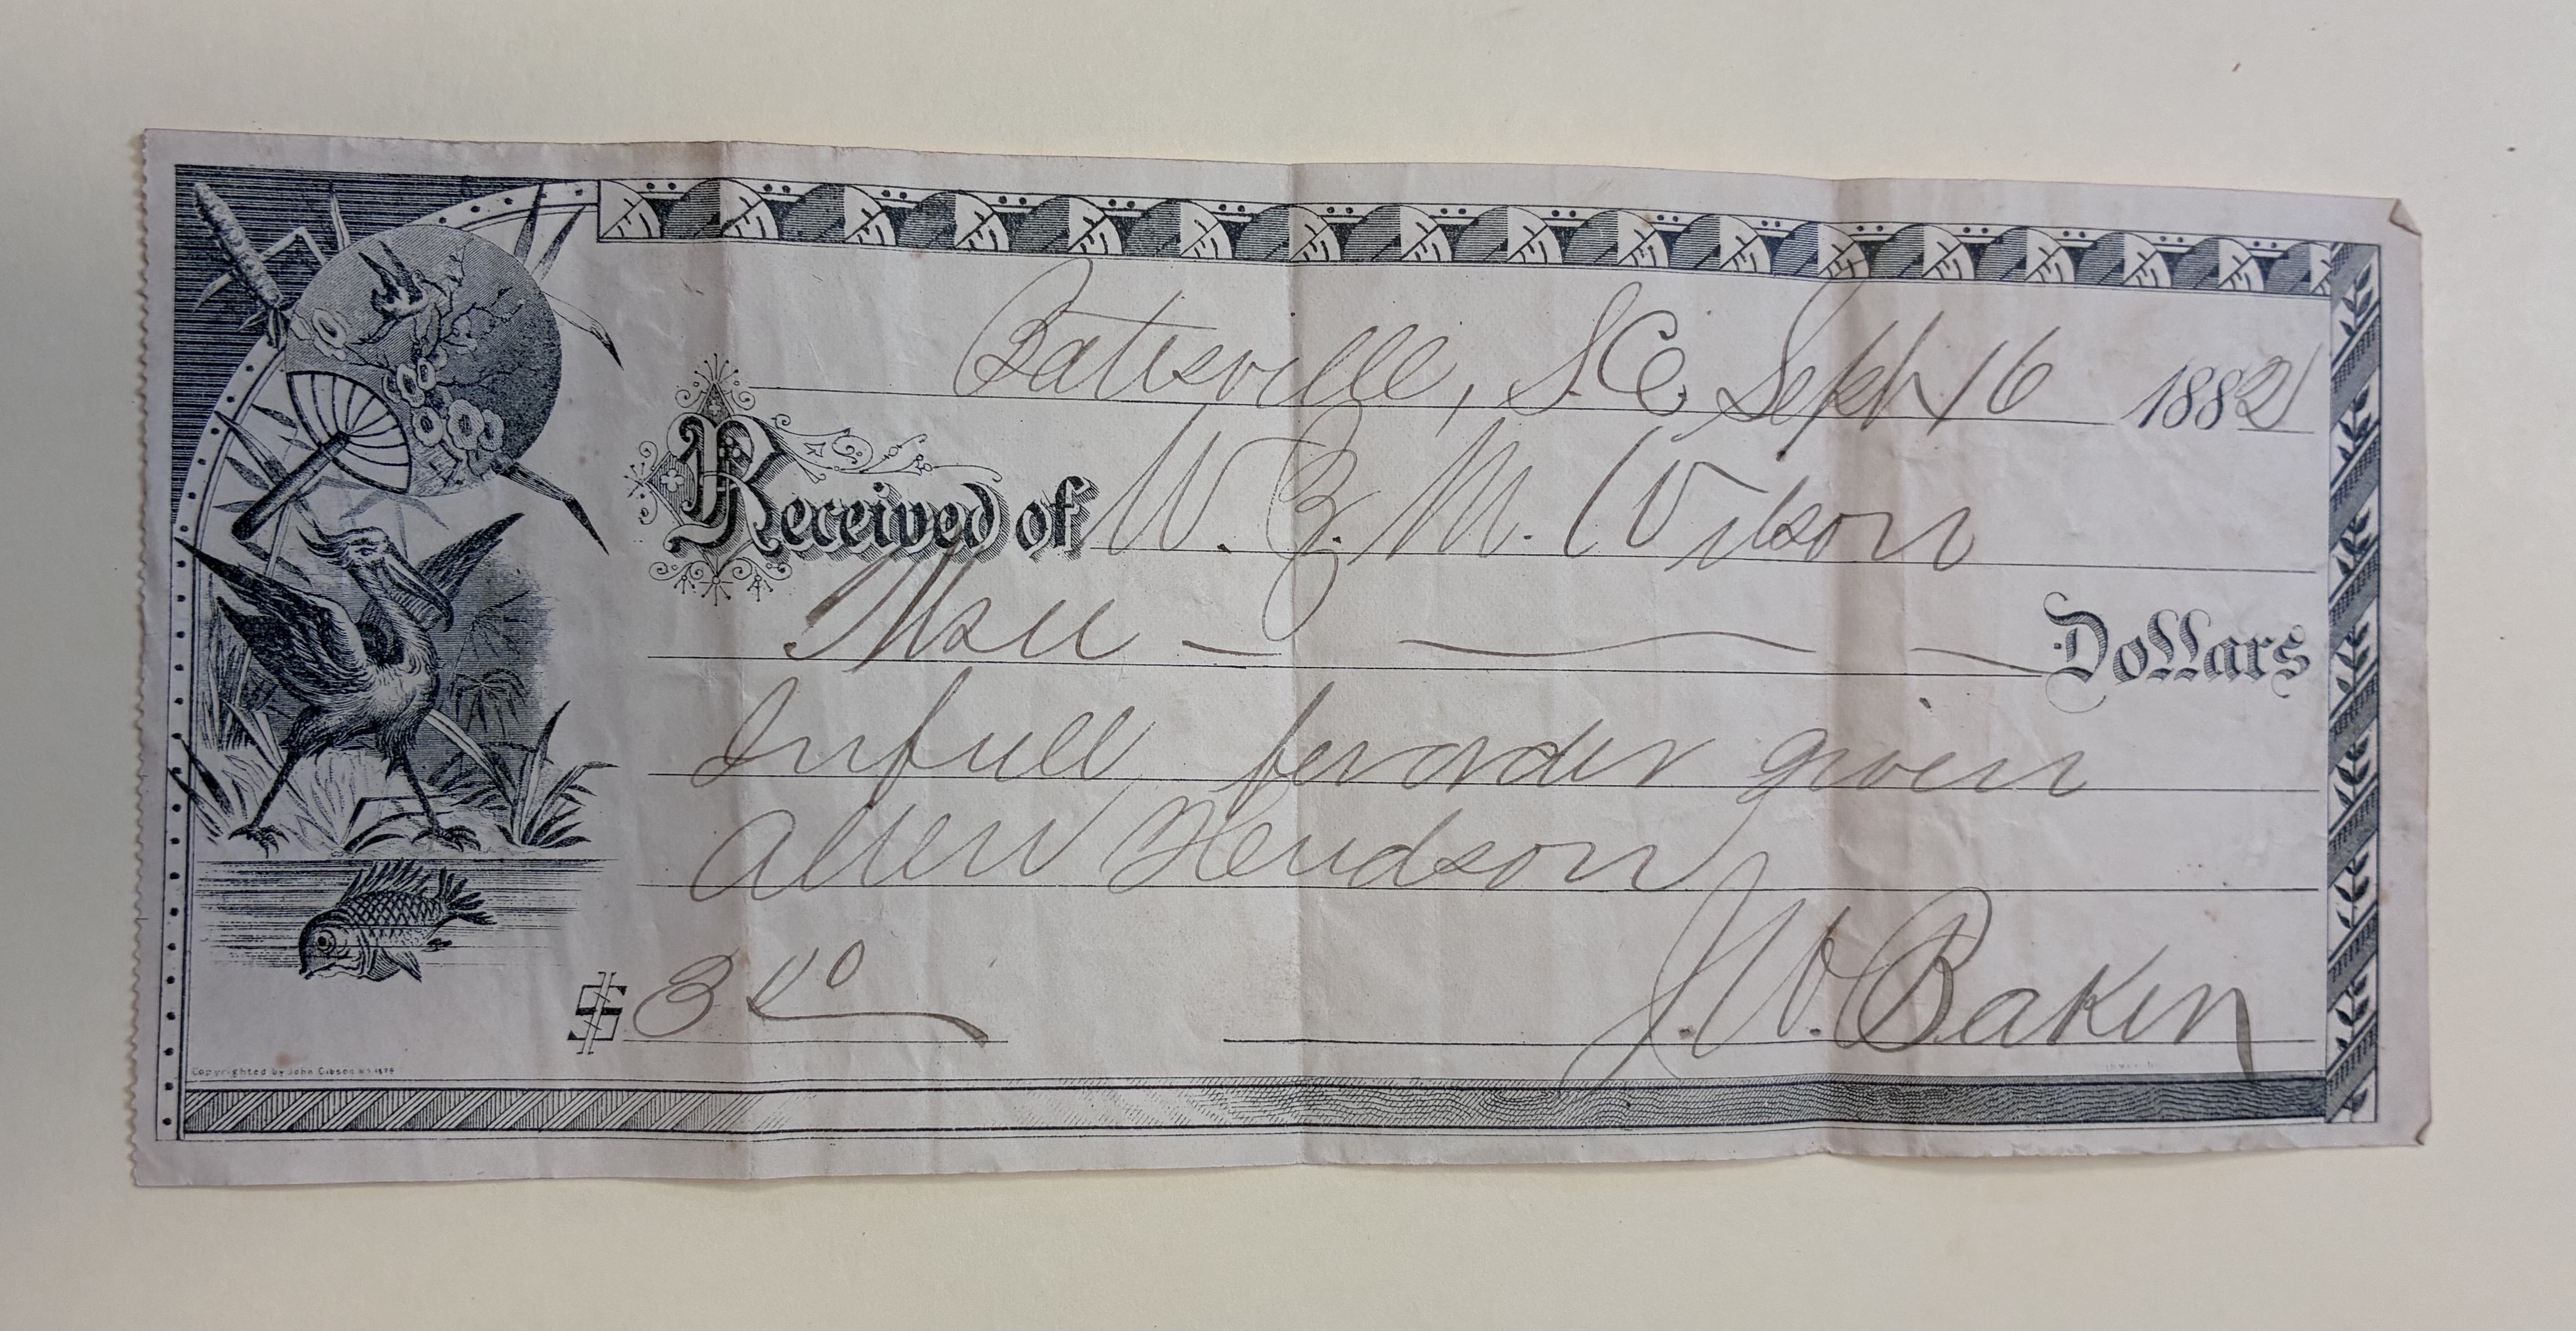 Batesville, S.C. Sept 16 1882
Received of W. Z. M. Wilson
Three Dollars
In full for order given
Allen Hendson
$3 00
J. W. Baker
Copyrighted by John Gibson